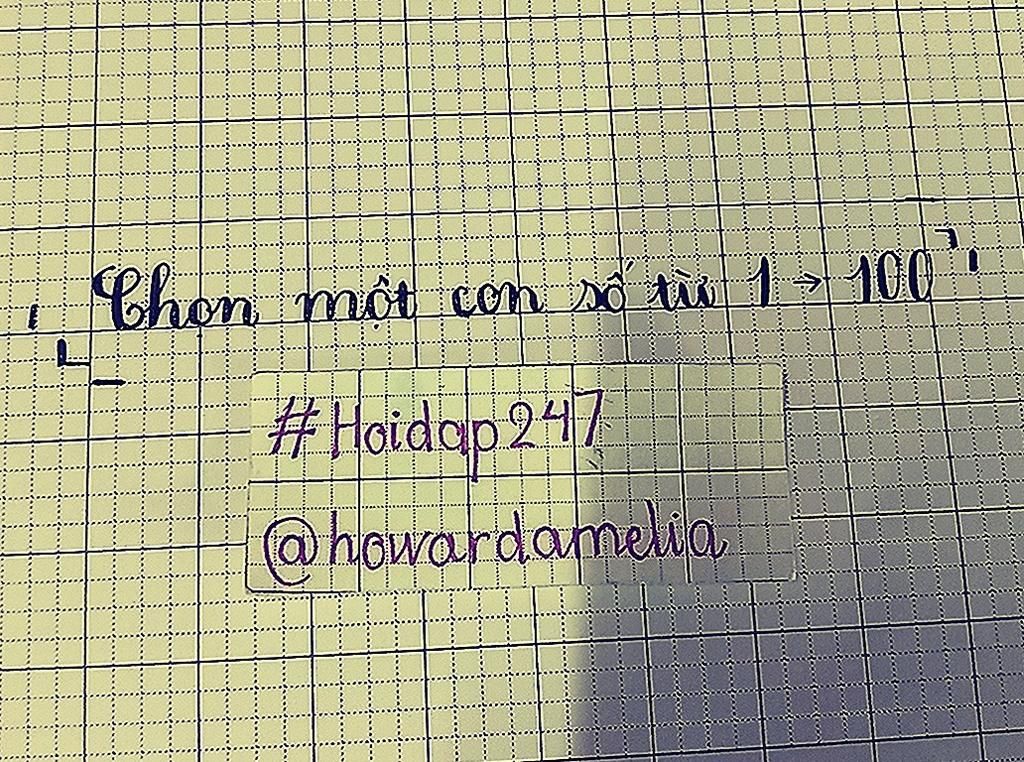 Chọn một con số từ 1 → 100
#Hoidap247
@howardamelia